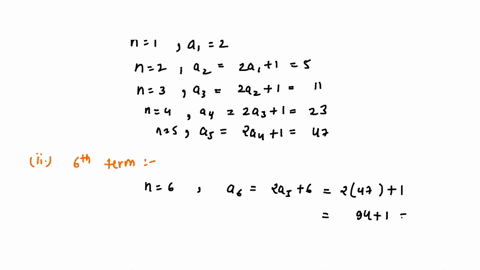 n=1 , a₁ = 2
n=2 , a₂ = 2a₁+1 = 5
n=3 , a₃ = 2a₂+1 = 11
n=4 , a₄ = 2a₃+1 = 23
n=5 , a₅ = 2a₄+1 = 47
(ii.) 6th term :-
n=6 , a₆ = 2a₅+6 = 2(47)+1
= 94+1 =